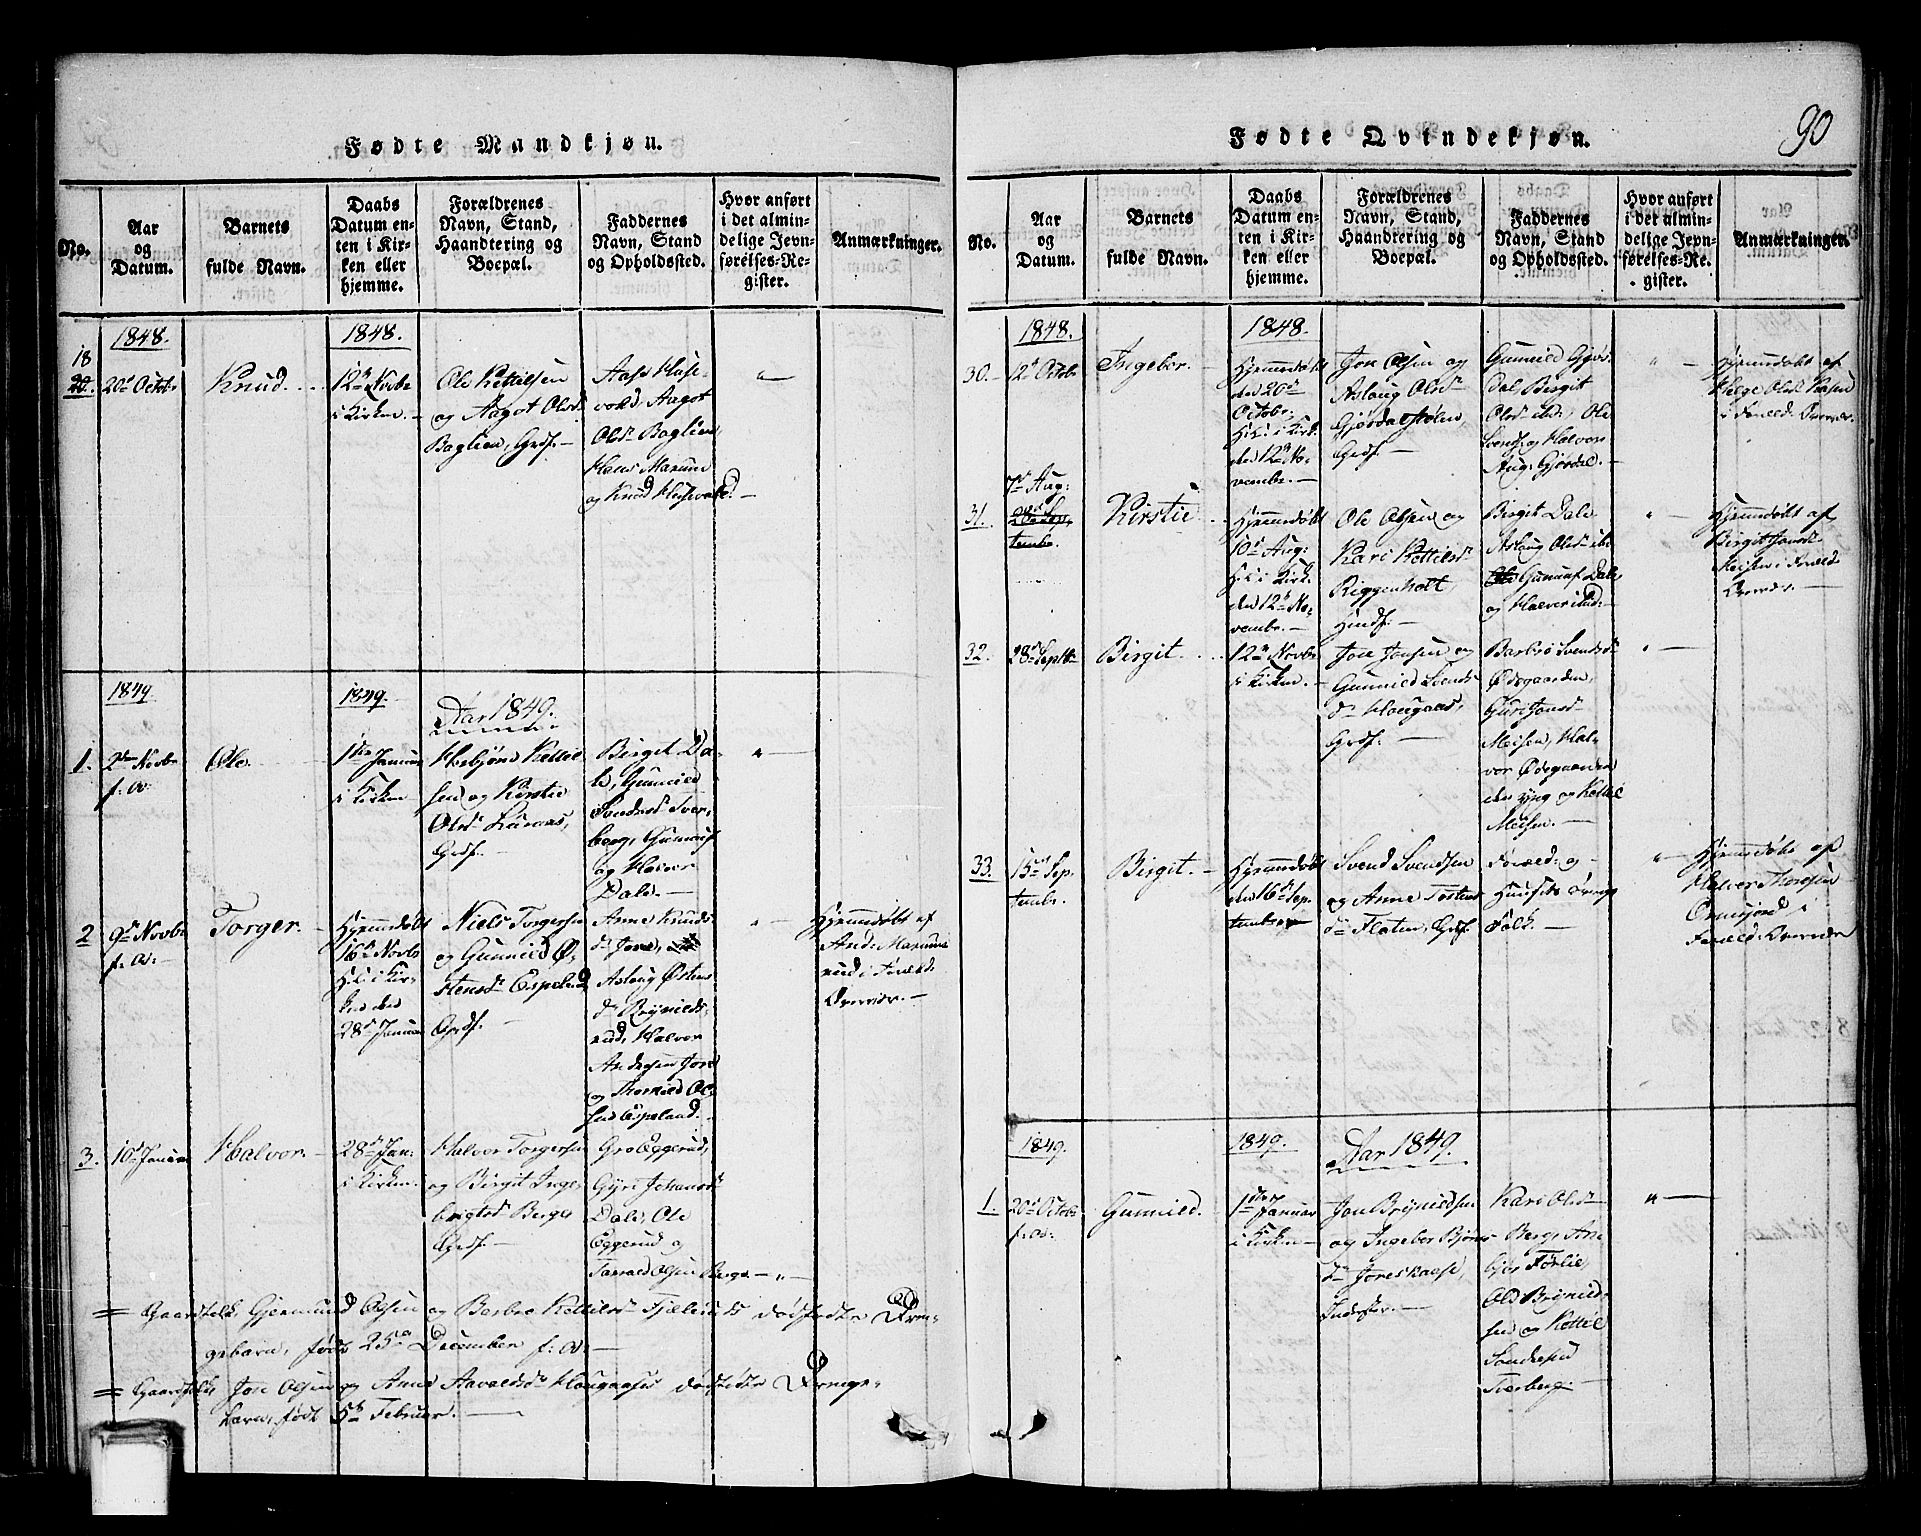 90
Fødte Mandkjøn.
No.
Aar
og
Datum.
Barnets
fulde Navn.
Daabs
Datum en-
ten i Kir-
ken eller
hjemme.
Forældrenes
Navn, Stand,
Haandtering og
Boepæl.
Faddernes
Navn, Stand
og Opholdssted.
Hvor anført
i det almin-
delige Jevn-
førelses-Re-
gister.
Anmærkninger.
1848.
1848.
18
20.
20d Octbr
Knud.
12te Novbr
i Kirken.
Ole Kettilsen
og Aagot Olsd
Baglien, Grdf.
Aase Hase-
vold, Aagot
Olsd Baglien,
Hans Marum
og Knud Hasevold.
"
1849.
1849.
Aar 1849.
1.
2den Novbr
f: A:
Ole.
1ste Januar
i Kirken
Hæbjørn Kettil-
sen og Kirstie
Olsd Luraas,
Grdf.
Birgit Da-
le, Gunnild
Svendsd Sver-
berg, Gunnuf
og Halvor
Dale.
"
2
9de Novbr
f: A:
Torger.
Hjemmedøbt
16de Novbr
H: i Kir-
ken den
28d Januar
Niels Torgersen
og Gunnild Ø-
stensd Espelund
Grdf.
Anne Knuds-
d Jore,
Aslaug Østens
d Røjnilds-
rud, Halvor
Andersen Jore
og Thorkild Ol-
sen Espeland.
"
Hjemmedøbt af
And: Marum-
rud i Foræld:
Overvær.
3.
10d Januar
Halvor.
28d Jan:
i Kirken.
Halvor Torgersen
og Birgit Inge-
brigtsd Berge
Grdf.
Gro Eggerud,
Gyri Johansd
Dale, Ole
Eggerud og
Tarald Olsen Berge.
"
= Gaardfolk Gjermund Olsen og Barbro Kettilsd Fjelruds dødfødte Dren-
gebarn, født 25d December f: A:
= Gaardfolk Jon Olsen og Anne Aavaldsd Haugaases dødfødte Drenge-
barn, født 5te Februar.
Fødte Qvindekjøn.
No.
Aar
og
Datum.
Barnets
fulde Navn.
Daabs
Datum en-
ten i Kir-
ken eller
hjemme.
Forældrenes
Navn, Stand,
Haandtering og
Boepæl.
Faddernes
Navn, Stand
og Opholdssted.
Hvor anført
i det almin-
delige Jevn-
førelses-Re-
gister.
Anmærkninger.
1848.
1848.
30.
12d Octobr
Ingebor.
Hjemmedøbt
den 20d
Octobr.
H: i Kirk:
den 12te No-
vembr.
Jon Olsen og
Aslaug Olsd
Gjørdalstølen,
Grdf.
Gunnild Gjør-
dal, Birgit
Olsd ibd:, Ole
Svends: og Halvor
Aug: Gjørdal.
"
Hjemmedøbt af
Helge Olsd
i Foræld: Overvær.
31.
7de Aug:
28d Sep-
tembr.
Kirstie.
Hjemmedøbt
10d Aug:
H: i Kirk:
den 12te No-
vembr.
Ole Olsen og
Kari Kettilsd
Riggenholt,
Husf.
Birgit Dale
Aslaug Olsd ibd
Ole Gunnuf Dale,
og Halvor ibid:
"
Hjemmedøbt af
Birgit Jonsd
Meisen i Foræld:
Overvær.
32.
28d Septbr
Birgit.
12te Novbr
i Kirken.
Jon Jonsen og
Gunnild Svends-
d Haugaas,
Grdf.
Barbro Svendsd
Ødegaarden,
Guri Jonsd
Meisen, Hal-
vor Ødegaarden
den yng og Kettil
Meisen.
"
33.
15d Sep-
tembr.
Birgit.
Hjemmedøbt
den 16d Sep-
tember
Svend Svendsen
og Anne Tostens
d Flaten, Grdf.
Foræld: og
Husets
Folk.
"
Hjemmedøbt af
Halvor Thoresen
i
Foræld: Overvær
1849.
1849.
Aar 1849.
1.
20d Octobr
f: A:
Gunnild.
1ste Januar
i Kirken
Jon Brynildsen
og Ingebor Bjørns-
d Joreskaase,
Inderster.
Kari Olsd
Berge, An-
bjør Førlie,
Ole Brynild-
sen og Kettil
Sondresen
Sverberg.
"